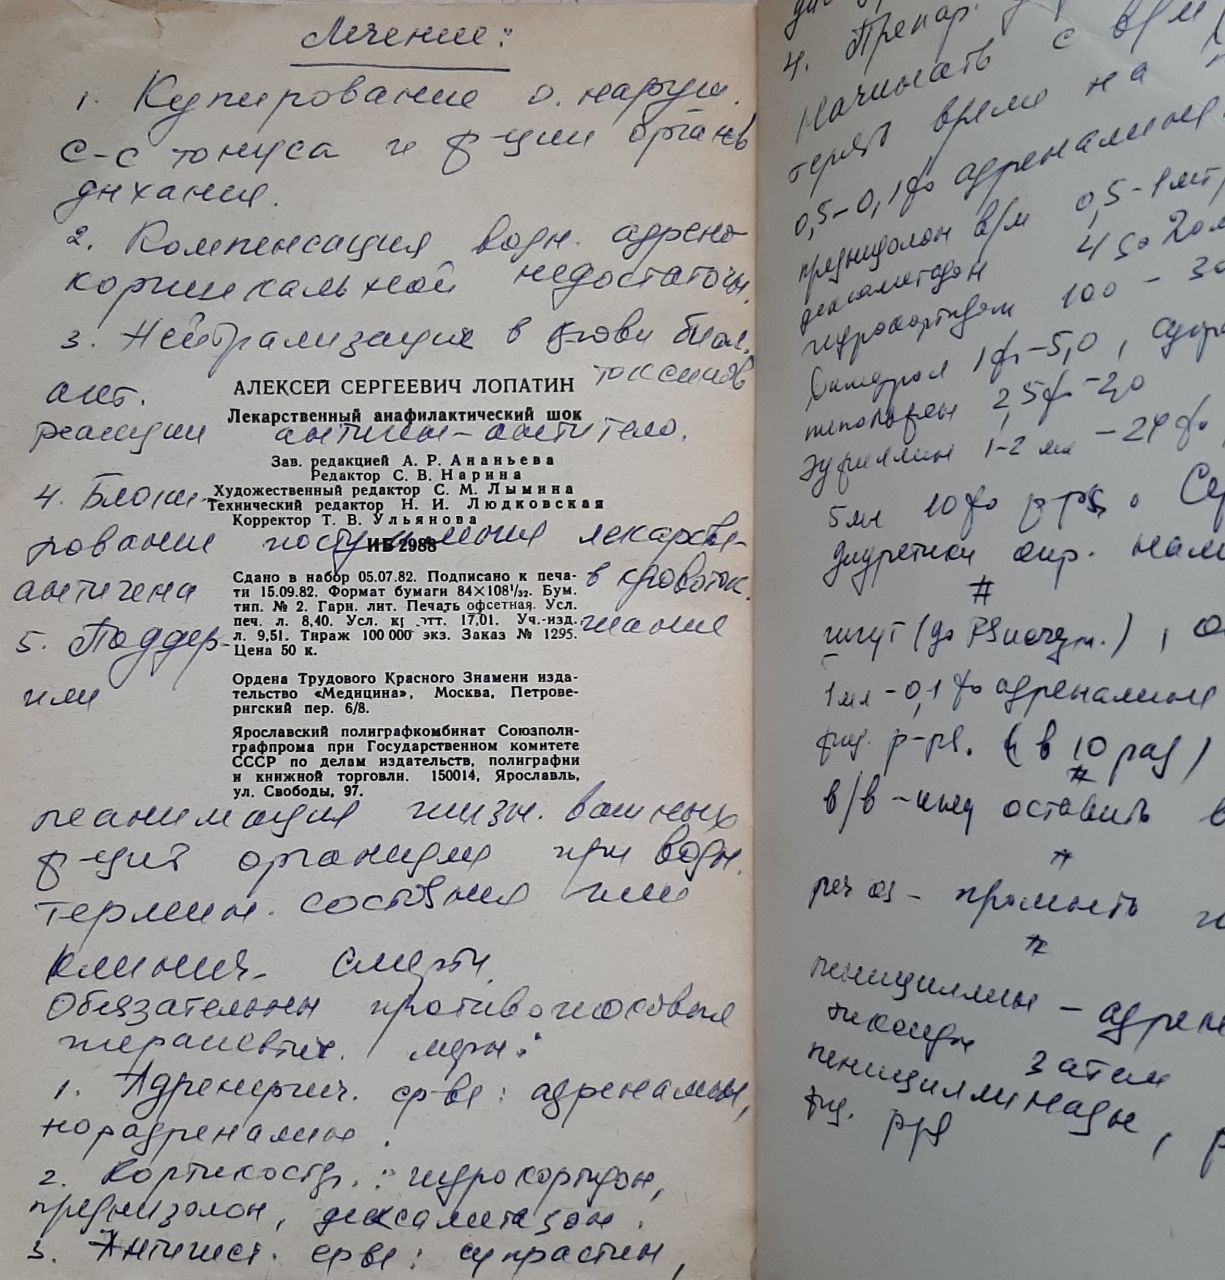 Лечение:
1. Купирование о. наруш.
с-с тонуса и ф-ции органов
дыхания.
2. Компенсация водн. адрено-
кортикальной недостаточн.
3. Нейтрализация в крови биол.
акт. токсинов
АЛЕКСЕЙ СЕРГЕЕВИЧ ЛОПАТИН
Лекарственный анафилактический шок
реакции антиген-антитело.
Зав. редакцией А. Р. Ананьева
Редактор С. В. Нарина
4. Блоки-
Художественный редактор С. М. Лымина
Технический редактор Н. И. Людковская
Корректор Т. В. Ульянова
рование поступления лекарств.-
ИБ 2988
антигена в кровоток.
Сдано в набор 05.07.82. Подписано к печа-
ти 15.09.82. Формат бумаги 84×108¹/₃₂. Бум.
тип. № 2. Гарн. лит. Печать офсетная. Усл.
печ. л. 8,40. Усл. кр.-отт. 17,01. Уч.-изд.
л. 9,51. Тираж 100 000 экз. Заказ № 1295.
Цена 50 к.
5. Поддер-жание
или
Ордена Трудового Красного Знамени изда-
тельство «Медицина», Москва, Петрове-
ригский пер. 6/8.
Ярославский полиграфкомбинат Союзполи-
графпрома при Государственном комитете
СССР по делам издательств, полиграфии
и книжной торговли. 150014, Ярославль,
ул. Свободы, 97.
реанимация жизн. важных
ф-ций организма при водн.
термин. состояния или
клинич. смерти
Обязательны противошоковые
терапевтич. меры:
1. Адренергич. ср-ва: адреналин,
норадреналин.
2. Кортикостр.: гидрокортизон,
преднизолон, дексаметазон.
3. Антигист. ср-ва: супрастин,
4. Препар.
Начинать с в/м
терять время на
0,5-0,1% адреналина
преднизолон в/м 0,5-1 мг
дексаметазон 4
гидрокортизон 100 - 30
Димедрол 1% - 5,0, супра
пипольфен 2,5% - 2,0
Эуфиллин 1-2 мл - 24%
5 мл 10% р-ра.
диуретики
#
жгут (до
1 мл - 0,1% адреналина
физ. р-ра. (в 10 раз)
#
в/в - иглу оставить в
#
per os - промыть
#
пенициллин - адрен
затем
пенициллиназы,
физ. р-ра